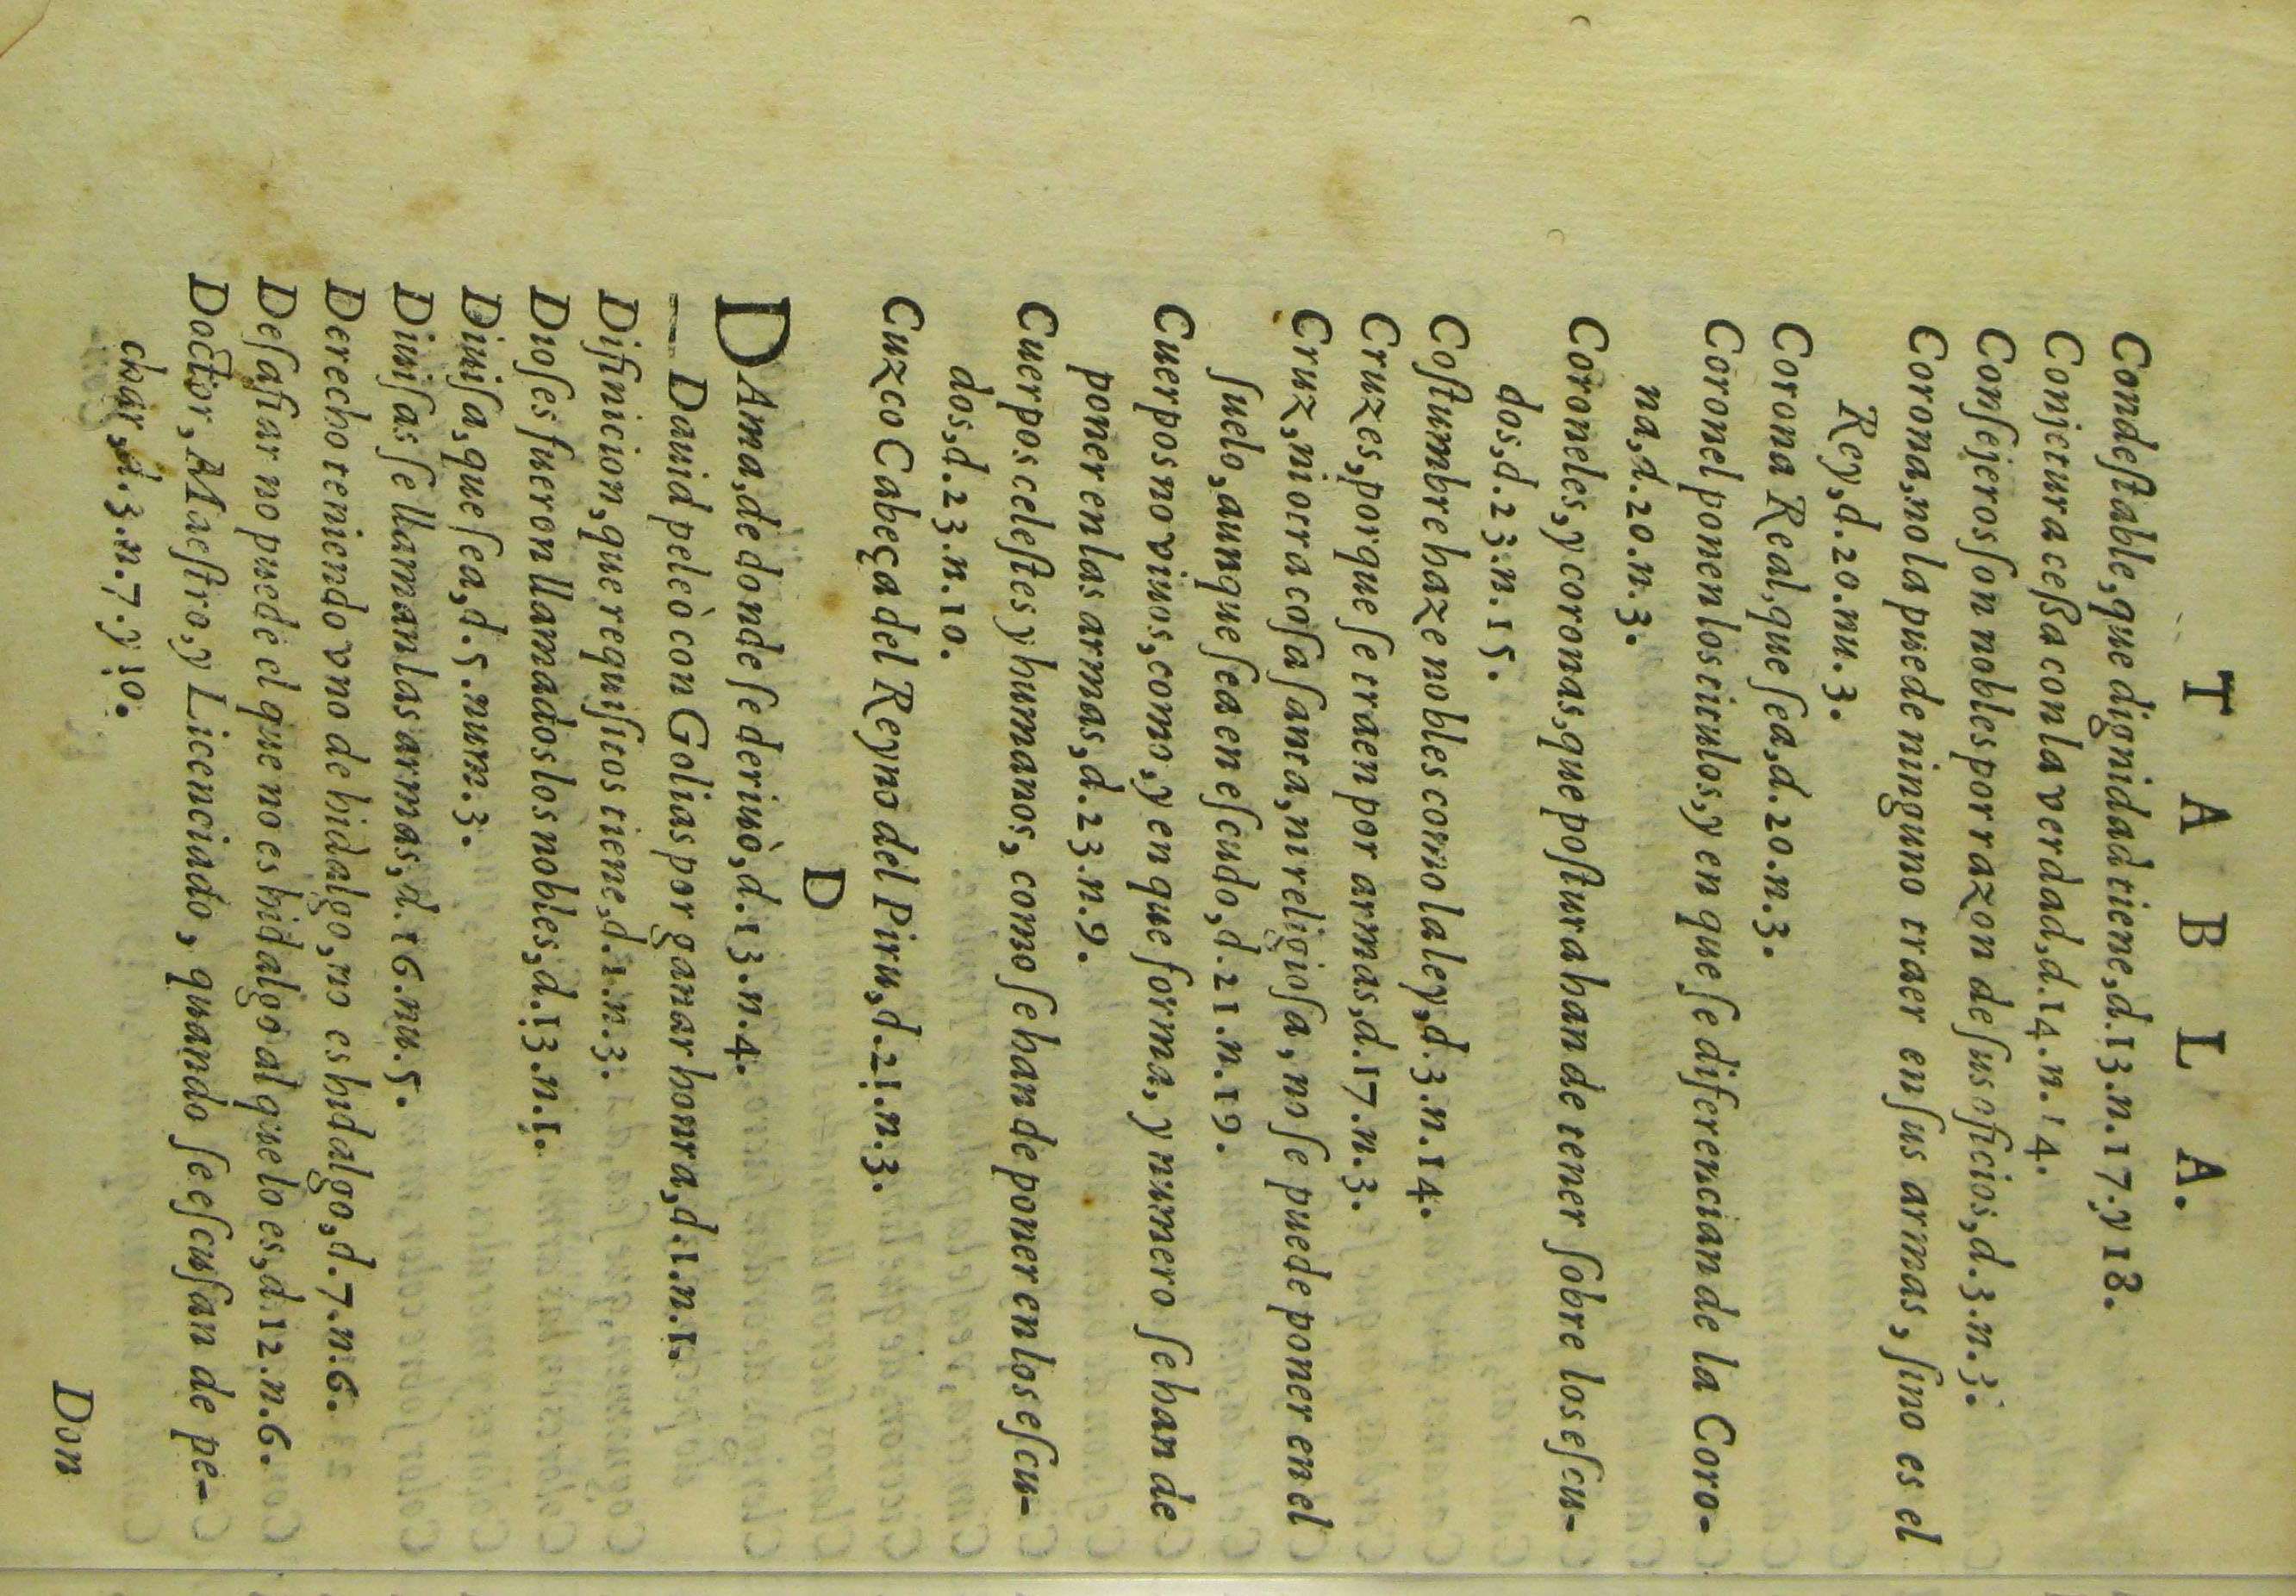 T A B L A.
Condeſtable, que dignidad tiene, d. 13. n. 17. y 18.
Conjetura ceſſa con la verdad, d. 14. n. 14.
Conſejeros ſon nobles por razon de ſus oficios, d. 3. n. 3.
Corona, no la puede ninguno traer en ſus armas, ſino es el
Rey, d. 20. nu. 3.
Corona Real, que ſea, d. 20. n. 3.
Coronel ponen los titulos, y en que ſe diferencian de la Coro-
na, d. 20. n. 3.
Coroneles, y coronas, que poſtura han de tener ſobre los eſcu-
dos, d. 23. n. 15.
Coſtumbre haze nobles como la ley, d. 3. n. 14.
Cruzes, porque ſe traen por armas, d. 17. n. 3.
Cruz, ni otra coſa ſanta, ni religioſa, no ſe puede poner en el
ſuelo, aunque ſea en eſcudo, d. 21. n. 19.
Cuerpos no viuos, como, y en que forma, y numero ſe han de
poner en las armas, d. 23. n. 9.
Cuerpos celeſtes y humanos, como ſe han de poner en los eſcu-
dos, d. 23. n. 10.
Cuzco Cabeça del Reyno del Piru, d. 21. n. 3.
D
DAma, de donde ſe deriuò, d. 13. n. 4.
Dauid peleò con Golias por ganar honra, d. 1. n. 1.
Difinicion, que requiſitos tiene, d. 1. n. 3.
Dioſes fueron llamados los nobles, d. 13. n. 1.
Diuiſa, que ſea, d. 5. num. 3.
Diuiſas ſe llaman las armas, d. 16. nu. 5.
Derecho teniendo vno de hidalgo, no es hidalgo, d. 7. n. 6.
Deſafiar no puede el que no es hidalgo al que lo es, d. 12. n. 6.
Doctor, Maeſtro, y Licenciado, quando ſe eſcuſan de pe-
char, d. 3. n. 7. y 10.
Don